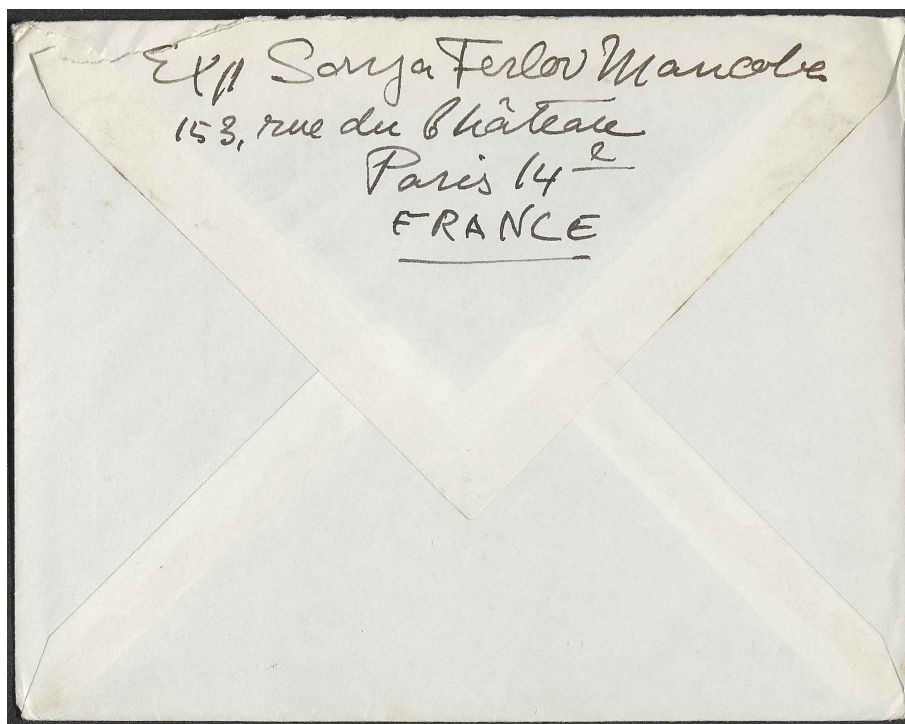 Exp Sonja Ferlov Mancoba
153, rue du Château
Paris 14e
FRANCE